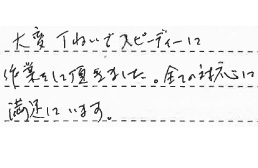 大変丁ねいでスピーディーに
作業をして頂きました。全ての対応に
満足しています。